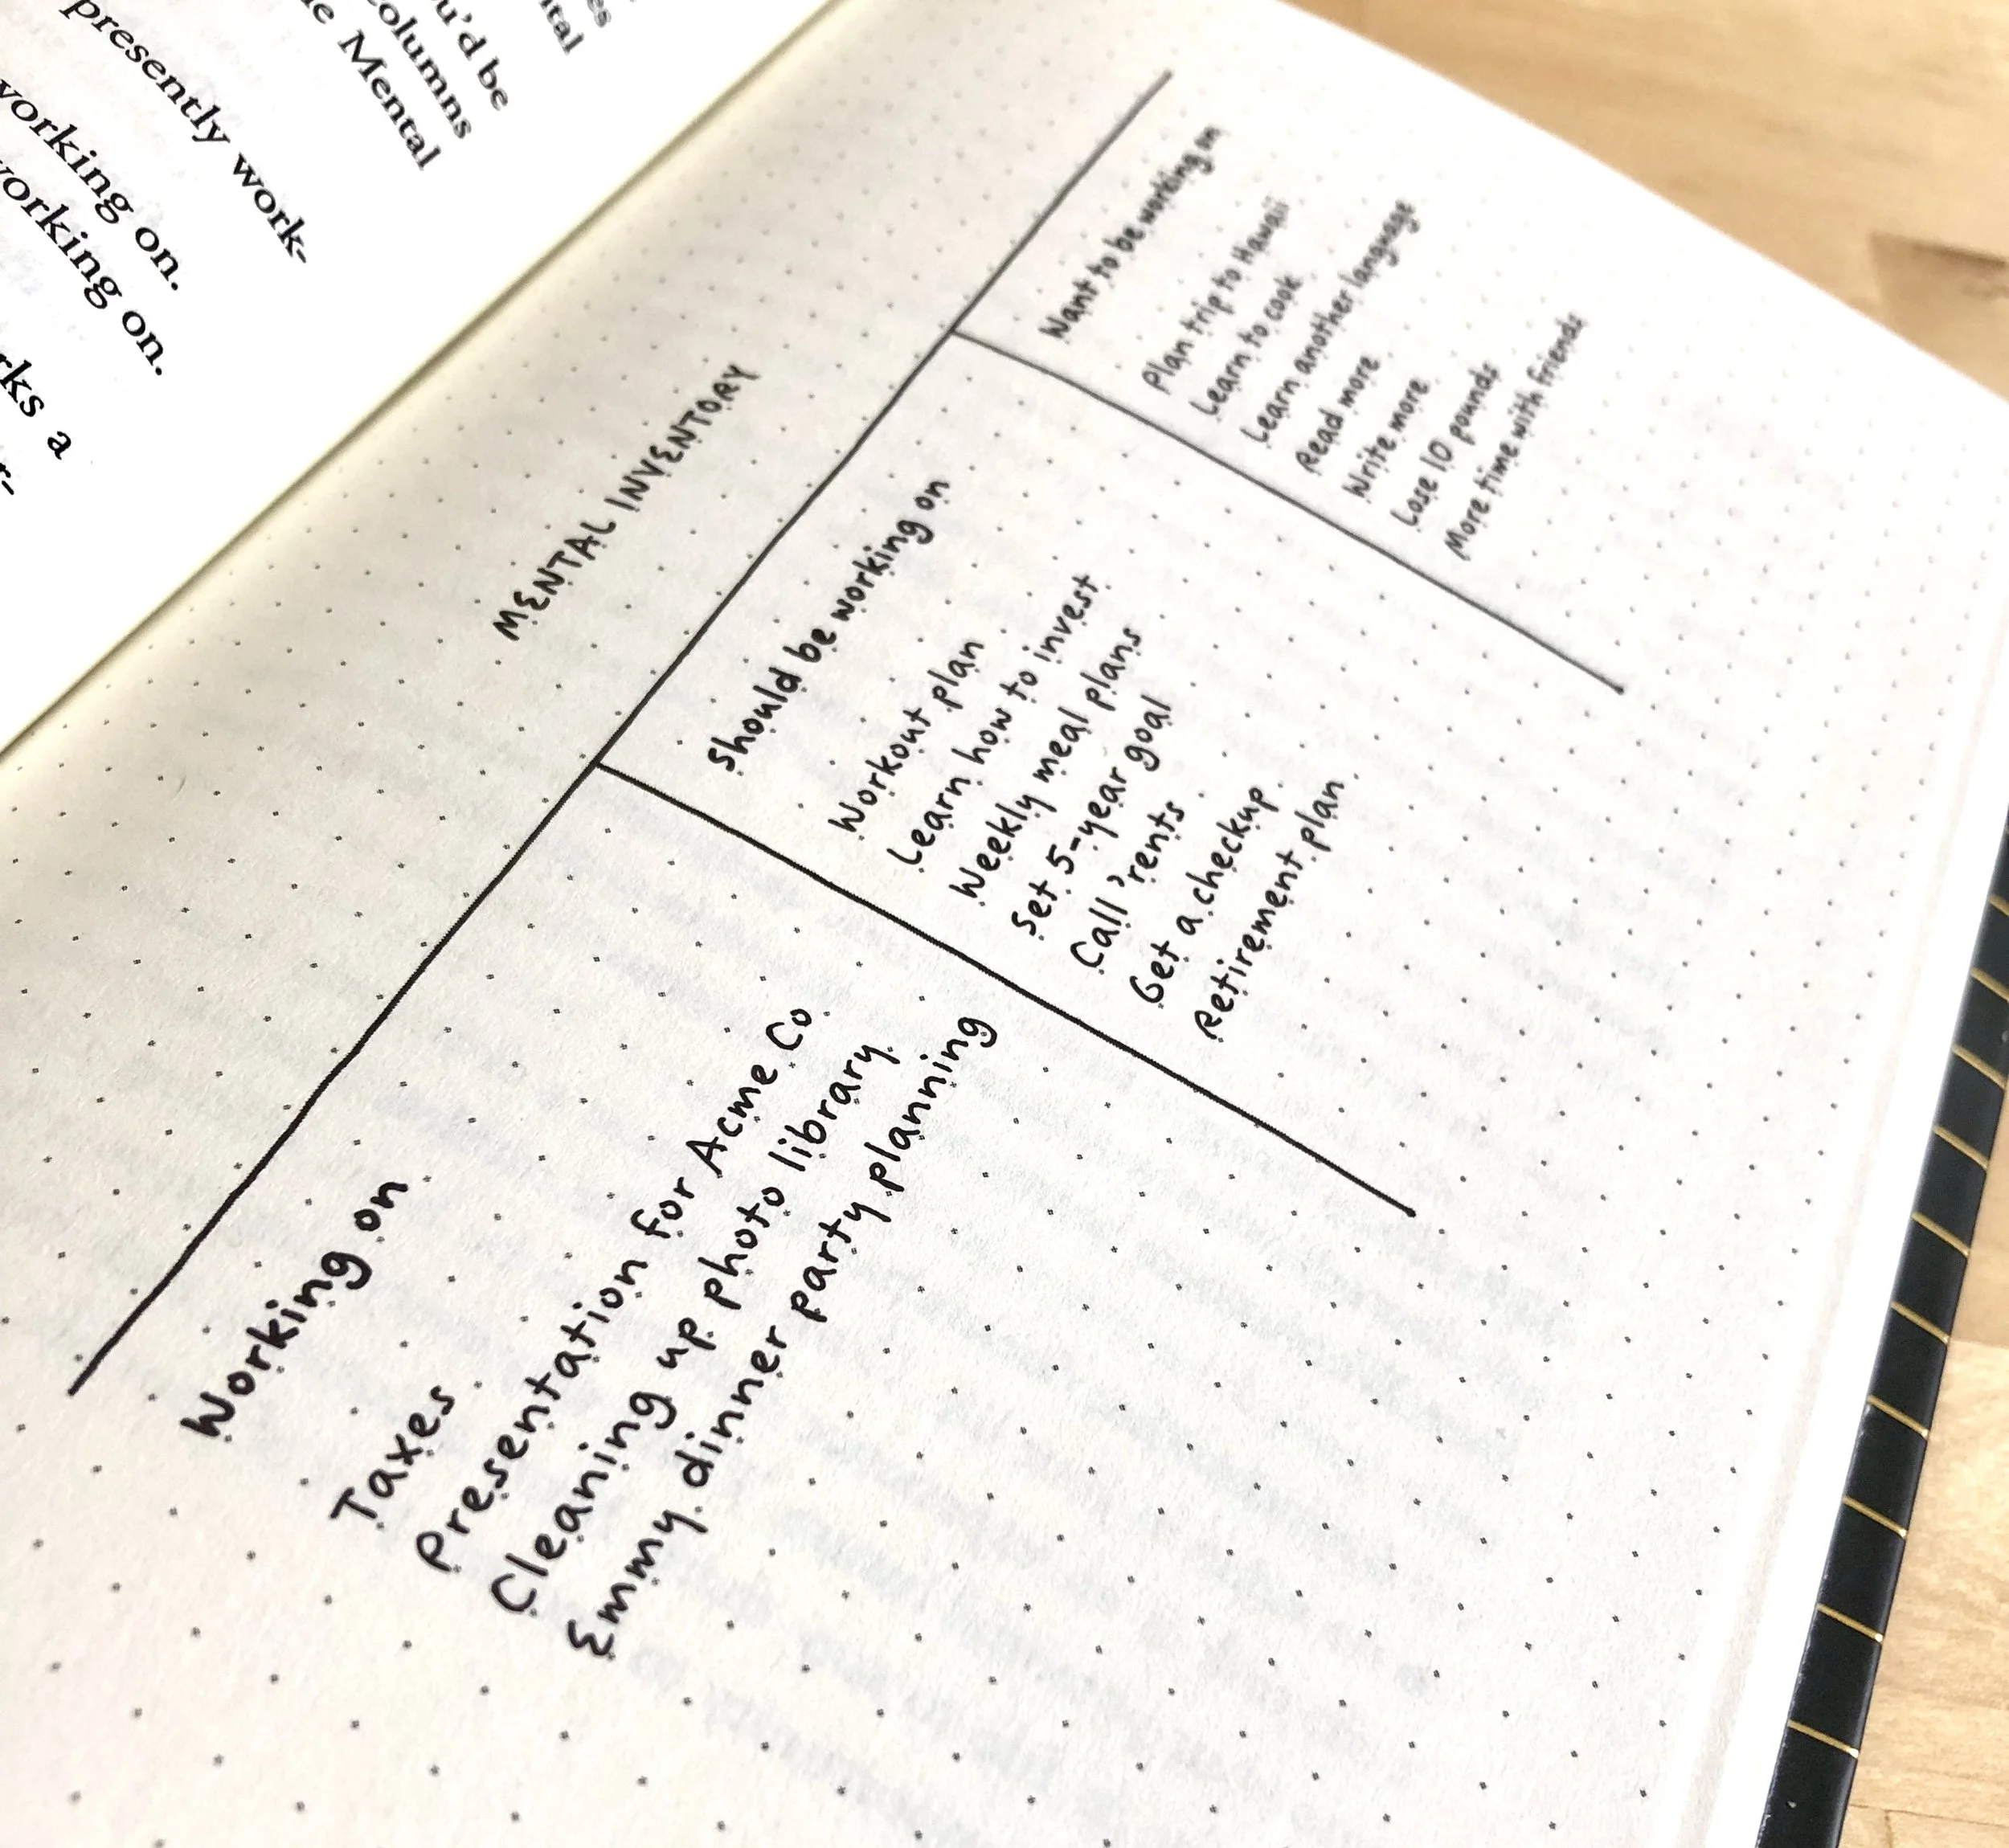 presently work-
working on.
working on.
rks a
r-
es
ntal
u'd be
columns
e Mental
MENTAL INVENTORY
Working on
Taxes
Presentation for Acme Co
Cleaning up photo library
Emmy dinner party planning
Should be working on
Workout plan
Learn how to invest
Weekly meal plans
Set 5-year goal
Call 'rents
Get a checkup
Retirement plan
Want to be working on
Plan trip to Hawaii
Learn to cook
Learn another language
Read more
Write more
Lose 10 pounds
More time with friends